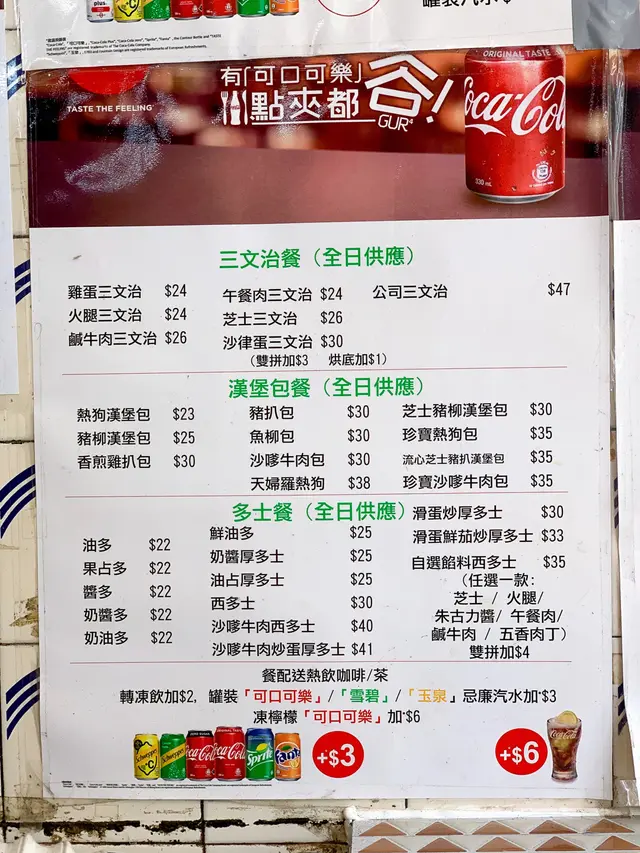 plus
罐裝汽水
TASTE THE FEELING
有「可口可樂」
點夾都
谷!
GUR⁴
ORIGINAL TASTE
Coca-Cola
330 mL
三文治餐（全日供應）
雞蛋三文治 $24 午餐肉三文治 $24 公司三文治 $47
火腿三文治 $24 芝士三文治 $26
鹹牛肉三文治 $26 沙律蛋三文治 $30
（雙拼加$3 烘底加$1）
漢堡包餐（全日供應）
熱狗漢堡包 $23 豬扒包 $30 芝士豬柳漢堡包 $30
豬柳漢堡包 $25 魚柳包 $30 珍寶熱狗包 $35
香煎雞扒包 $30 沙嗲牛肉包 $30 流心芝士豬扒漢堡包 $35
天婦羅熱狗 $38 珍寶沙嗲牛肉包 $35
多士餐（全日供應）
油多 $22
果占多 $22
醬多 $22
奶醬多 $22
奶油多 $22
鮮油多 $25
奶醬厚多士 $25
油占厚多士 $25
西多士 $30
沙嗲牛肉西多士 $40
沙嗲牛肉炒蛋厚多士 $41
滑蛋炒厚多士 $30
滑蛋鮮茄炒厚多士 $33
自選餡料西多士 $35
（任選一款：
芝士 / 火腿/
朱古力醬/ 午餐肉/
鹹牛肉 / 五香肉丁）
雙拼加$4
餐配送熱飲咖啡/茶
轉凍飲加$2, 罐裝「可口可樂」/「雪碧」/「玉泉」忌廉汽水加$3
凍檸檬「可口可樂」加$6
Schweppes +C
Schweppes
Coca-Cola
Coca-Cola
Sprite
Fanta
+$3
+$6
Coca-Cola